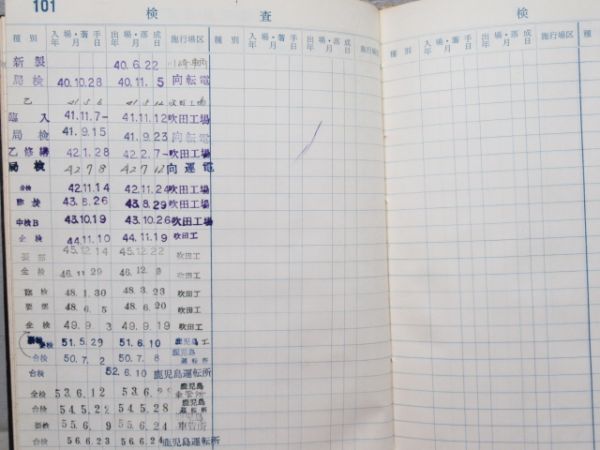 101
検 査
検
種 別 入場・着手 年 月 日 出場・落成 年 月 日 施行場区 種 別 入場・着手 年 月 日 出場・落成 年 月 日 施行場区
新製 40.6.22 川崎車両
局検 40.10.28 40.11.5 向転電
乙 41.5.6 吹田工場
臨入 41.11.7 41.11.12 吹田工場
局検 41.9.15 41.9.23 向転電
乙修繕 42.1.28 42.2.7 吹田工場
局検 42.7.8 42.7.12 向運電
全検 42.11.14 42.11.24 吹田工場
臨検 43.8.26 43.8.29 吹田工場
中検B 43.10.19 43.10.26 吹田工場
全検 44.11.10 44.11.19 吹田工
要部 45.12.14 45.12.22
全検 46.11.29 46.12.9 吹田工
臨検 48.1.30 48.3.23 吹田工
要部 48.6.5 48.6.20 吹田工
全検 49.9.3 49.9.19 吹田工
全検 51.5.29 51.6.10 鹿児島工
台検 50.7.2 50.7.8 鹿児島運転所
台検 52.6.10 鹿児島運転所
全検 53.6.12 53.6.2 鹿児島
台検 54.5.22 54.5.28 鹿児島
要検 55.6.9 55.6.24
台検 56.6.23 56.6.24 鹿児島運転所